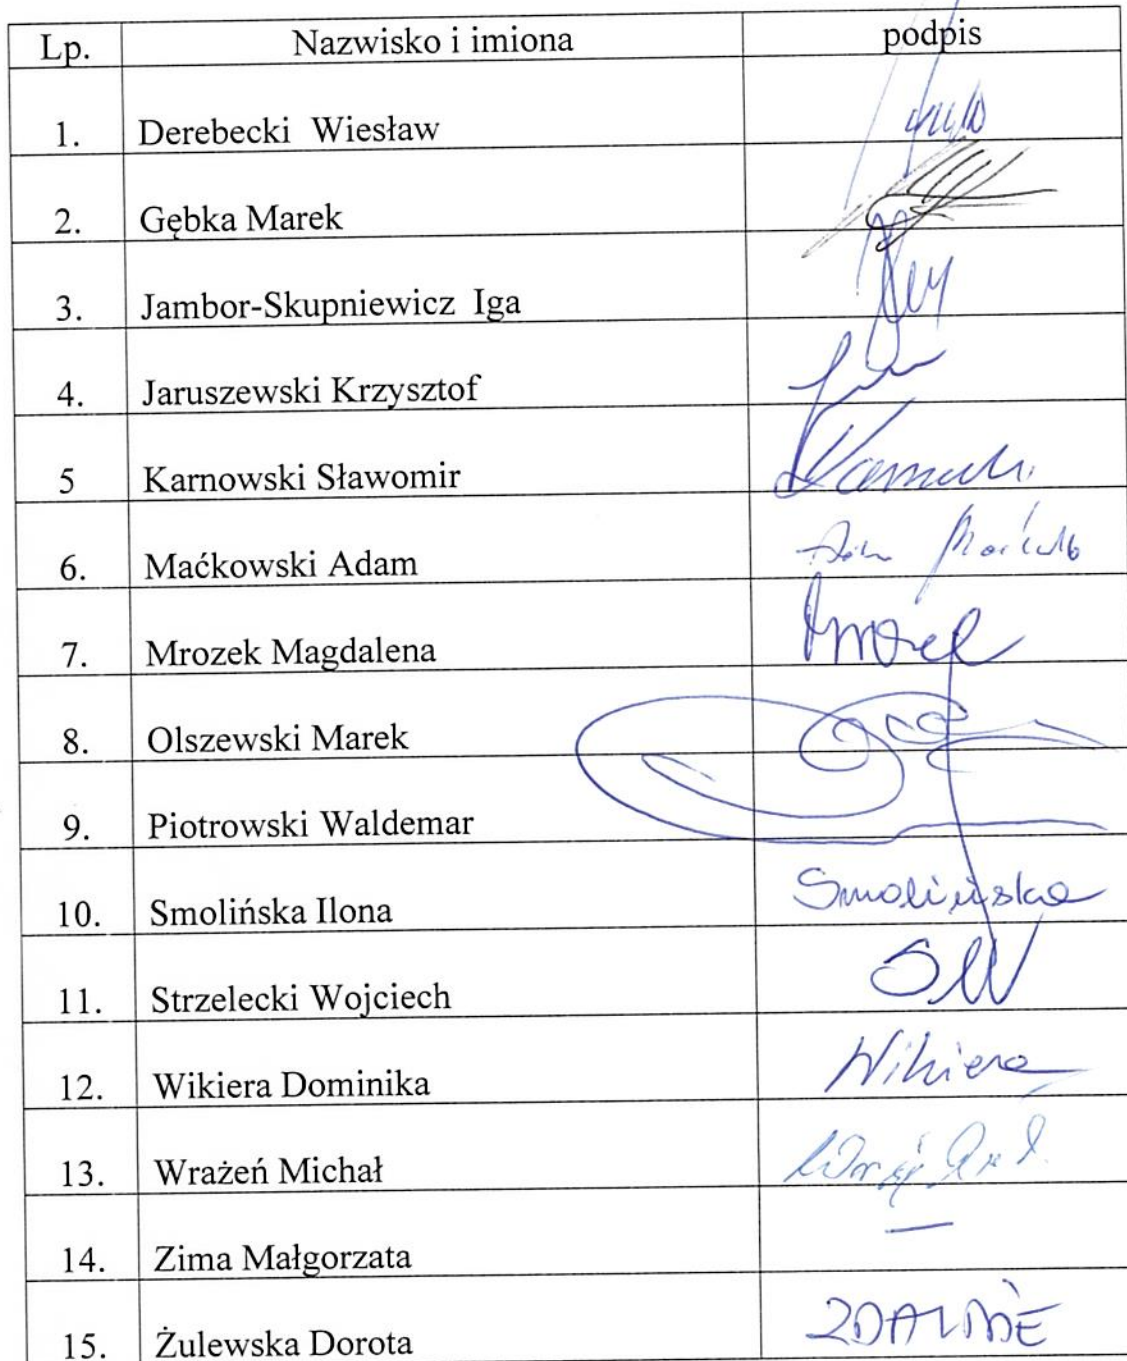 Lp. Nazwisko i imiona podpis
1. Derebecki Wiesław
2. Gębka Marek
3. Jambor-Skupniewicz Iga
4. Jaruszewski Krzysztof
5 Karnowski Sławomir
6. Maćkowski Adam
7. Mrozek Magdalena
8. Olszewski Marek
9. Piotrowski Waldemar
10. Smolińska Ilona Smolińska
11. Strzelecki Wojciech SW
12. Wikiera Dominika Wikiera
13. Wrażeń Michał
14. Zima Małgorzata —
15. Żulewska Dorota ZDALNIE